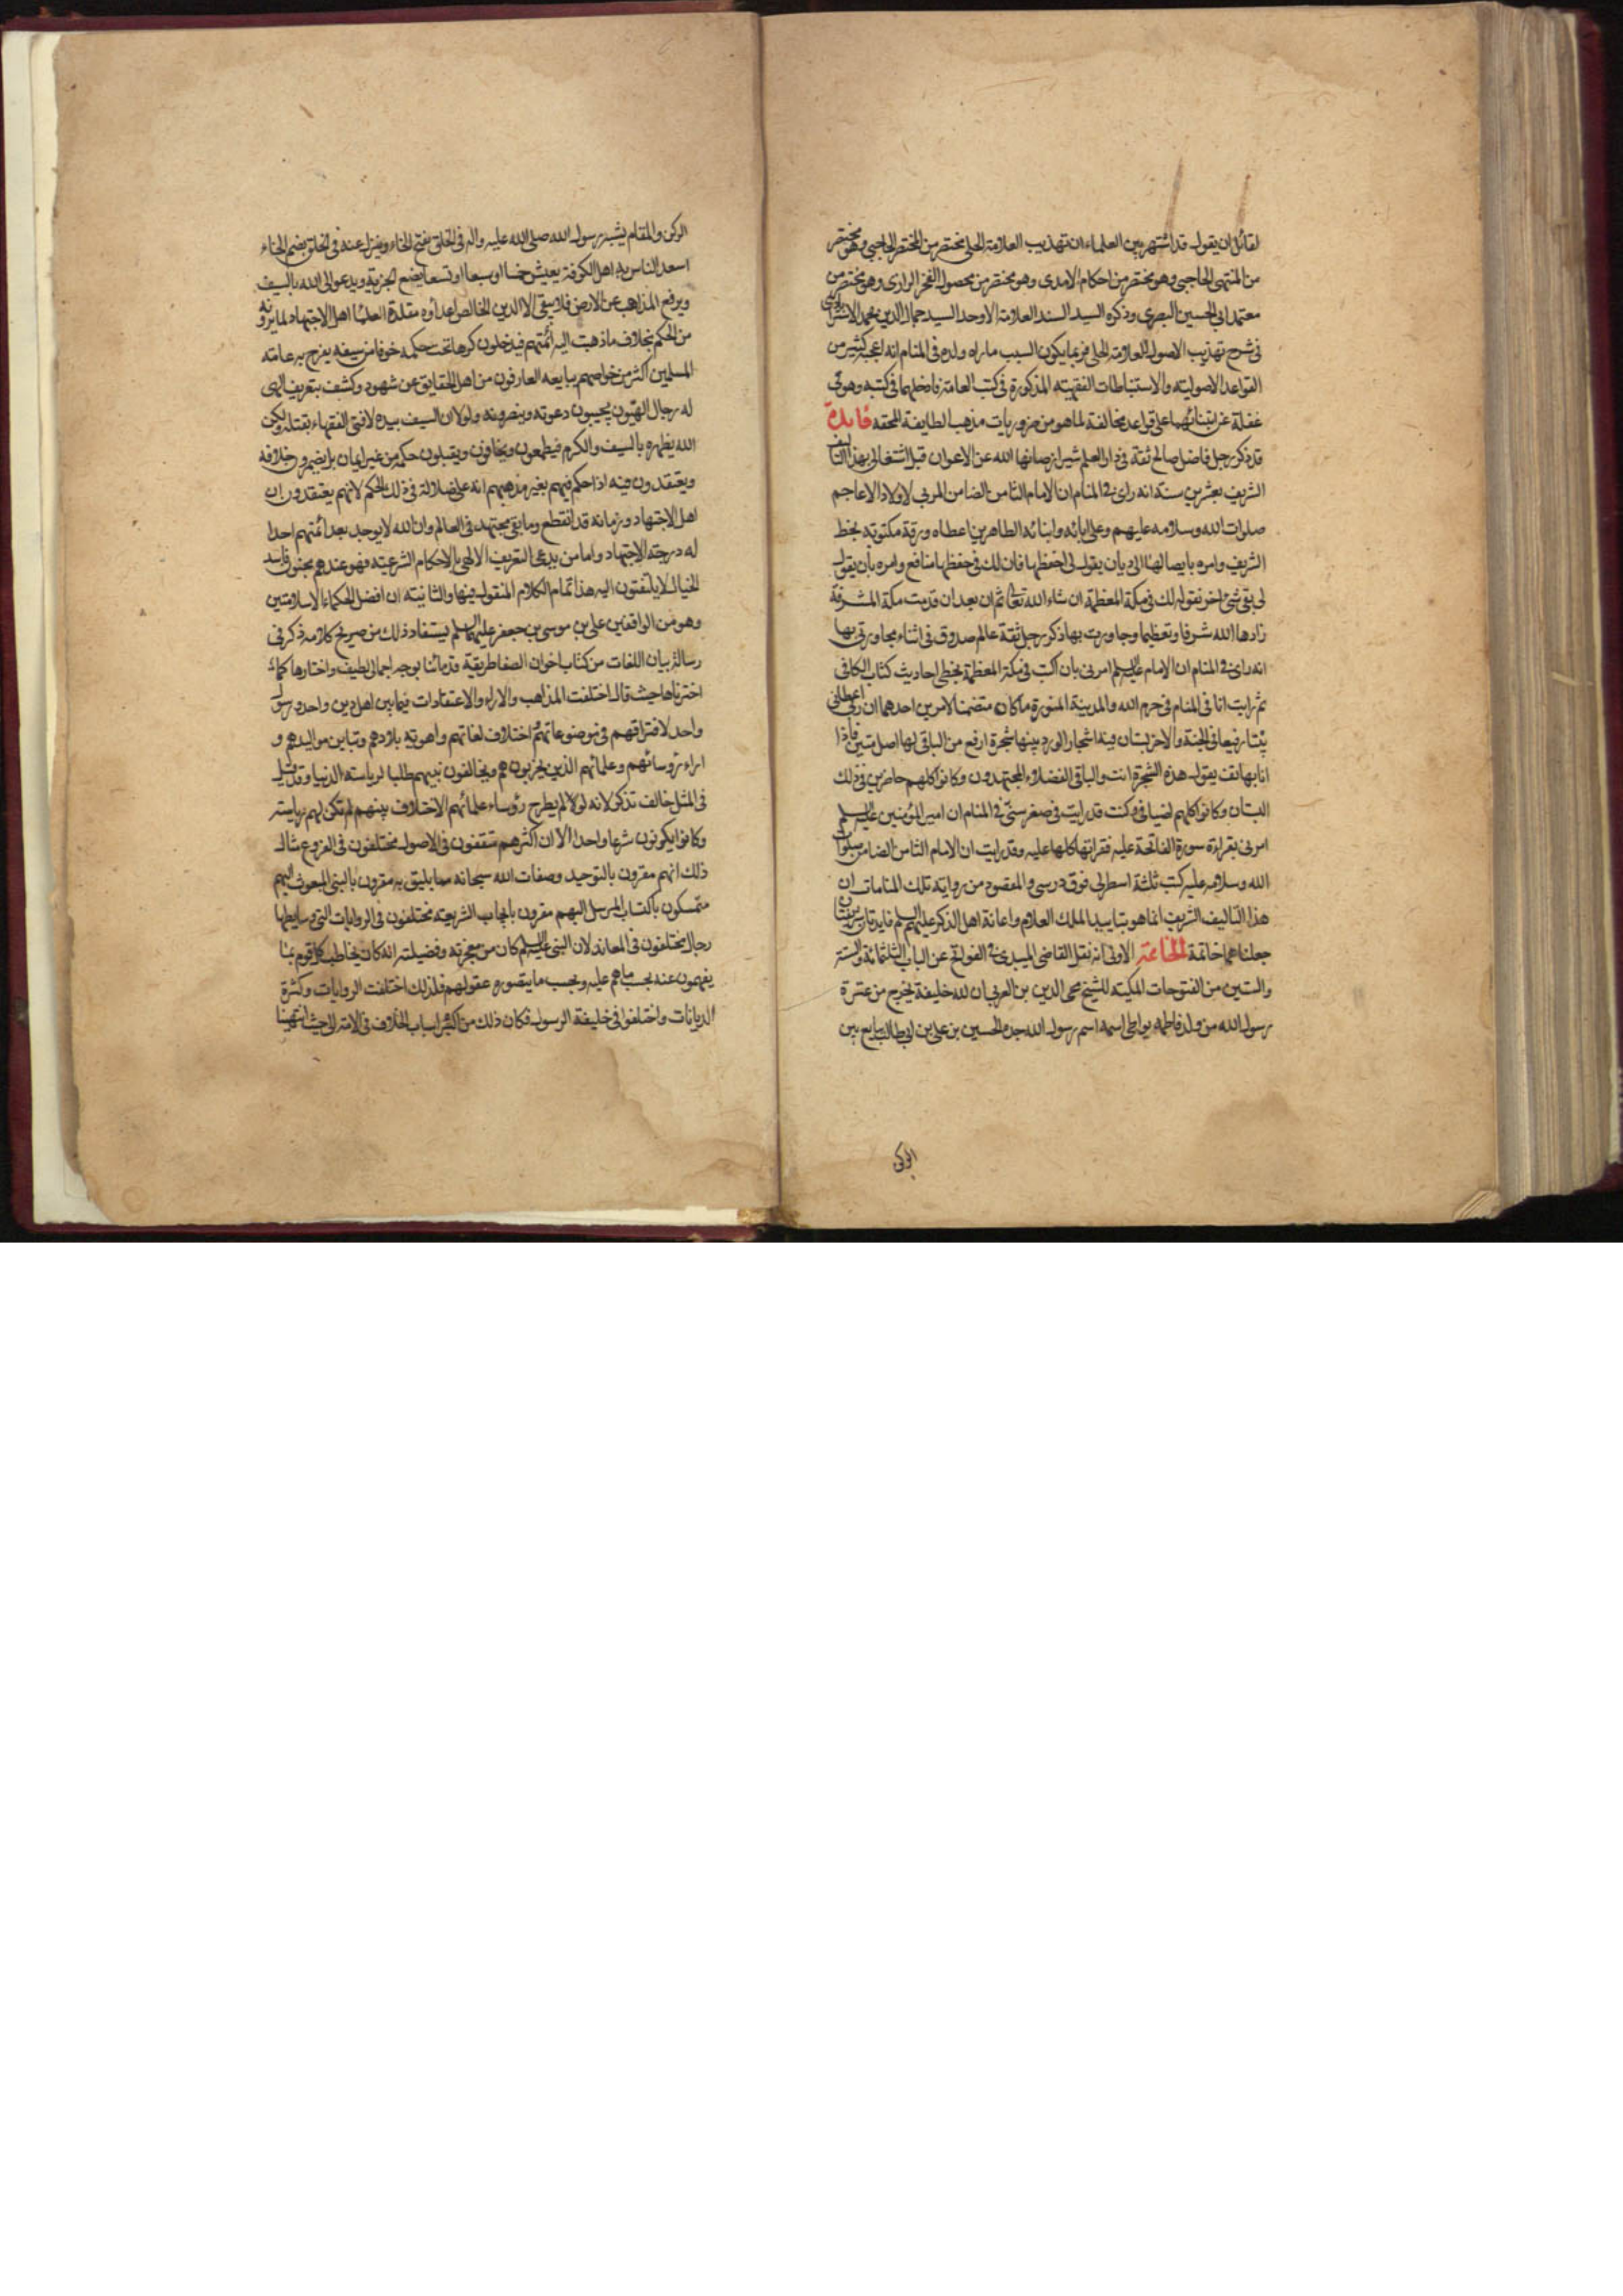 لقائل ان يقول قد اشتهر بين العلماء ان تهذيب العلامة الحلي مختصر من المختصر الحاجبي وهو مختصر
من المنتهى الحاجبي وهو مختصر من احكام الامدي وهو مختصر من محصول الفخر الرازي وهو مختصر من
معتمد ابي الحسين البصري وذكره السيد السند العلامة الاوحد السيد جمال الدين محمد الاسترابادي
في شرح تهذيب الاصول للعلامة الحلي فربما يكون السبب ما راه ولده في المنام انه اعجبه كثير من
القواعد الاصوليته والاستنباطات الفقهيته المذكورة في كتب العامة فادخلهما في كتبه وهو في
غفلة عن ابتنائهما على قواعد مخالفة لما هو من ضروريات مذهب الطايفة المحقه فايدة
قد ذكر رجل فاضل صالح ثقة في دار العلم شيراز صانها الله عن الاعوان قبل اشتغالي بهذا التاليف
الشريف بعشرين سنة انه راى في المنام ان الامام الثامن الضامن المربي لاولاد الاعاجم
صلوات الله وسلامه عليهم وعلى ابائه وابنائه الطاهرين اعطاه ورقة مكتوبة بخط
الشريف وامره بايصالها الي وبان يقول لي احفظها فان لك في حفظها منافع وامره بأن يقول
لي بقي شئ اخر نقوله لك في مكة المعظمة ان شاء الله تعالى ثم ان بعد ان قدمت مكة المشرفة
زادها الله شرفا وتعظيما وجاورت بها ذكر رجل ثقة عالم صدوق في اثناء مجاورتي بها
انه راى في المنام ان الامام عليه السلم امرني بان اكتب في مكة المعظمة بخطي احاديث كتاب الكافي
ثم رايت انا في المنام في حرم الله والمدينة المنورة ما كان متضمنا لامرين احدهما ان ربي اعطاني
بيتا رفيعا في الجنة والاخر بستان فيه اشجار الورد بينها شجرة ارفع من الباقي لها اصل متين فاذا
انا بهاتف يقول هذه الشجرة انت والباقي الفضلاء المجتهدون وكانوا كلهم حاضرين في ذلك
البستان وكانوا كلهم اضيافي وكنت قد رايت في صغر سني في المنام ان امير المؤمنين عليه السلم
امرني بقراءة سورة الفاتحة عليه فقراتها كلها عليه وقد رايت ان الامام الثامن الضامن صلوات
الله وسلامه عليه كتب ثلثة اسطر لي فوق درسي والمقصود من رواية تلك المنامات ان
هذا التاليف الشريف انما هو بتاييد الملك العلام واعانة اهل الذكر عليهم السلم فايدتان شريفتان
جعلناهما خاتمة الخاتمة الاولى انه نقل القاضي الميبدي في الفواتح عن الباب الثلثمائة والستة
والستين من الفتوحات المكيته للشيخ محي الدين بن العربي ان لله خليفة يخرج من عترة
رسول الله من ولد فاطمه يواطي اسمه اسم رسول الله جده الحسين بن علي بن ابي طالب يبايع بين
الركن
الركن والمقام يشبه رسول الله صلى الله عليه واله في الخلق بفتح الخاء وينزل عنه في الخلق بضم الخاء
اسعد الناس به اهل الكوفة يعيش خمسا او سبعا او تسعا يضع الجزية ويدعو الى الله بالسيف
ويرفع المذاهب عن الارض فلا يبقى الا الدين الخالص اعداؤه مقلدة العلماء اهل الاجتهاد لما يرونه
من الحكم بخلاف ما ذهبت اليه ائمتهم فيدخلون كرها تحت حكمه خوفا من سيفه يفرح به عامة
المسلمين اكثر من خواصهم يبايعه العارفون من اهل الحقايق عن شهود وكشف بتعريف الهي
له رجال الهيون يجيبون دعوته وينصرونه ولولا ان السيف بيده لافتى الفقهاء بقتله ولكن
الله يظهره بالسيف والكرم فيطمعون ويخافون ويقبلون حكمه من غير ايمان بل يضمرون خلافه
ويعتقدون فيه اذا حكم فيهم بغير مذهبهم انه على ضلالة في ذلك الحكم لانهم يعتقدون ان
اهل الاجتهاد وزمانه قد انقطع وما بقي مجتهد في العالم وان الله لا يوجد بعد ائمتهم احدا
له درجة الاجتهاد واما من يدعي التعريف الالهي بالاحكام الشرعيته فهو عندهم مجنون فاسد
الخيال لا يلتفتون اليه هذا تمام الكلام المنقول فيها والثانيته ان افضل الحكماء الاسلاميين
وهو من الواقفين على بن موسى بن جعفر عليهما السلم يستفاد ذلك من صريح كلامه ذكر في
رسالة بيان اللغات من كتاب اخوان الصفا طريقة قدمائنا بوجه اجمالي لطيف واختارها كما
اخترناها حيث قال اختلفت المذاهب والاراء والاعتقادات فيما بين اهل دين واحد ورسول
واحد لافتراقهم في موضوعاتهم واختلاف لغاتهم واهوية بلادهم وتباين مواليدهم و
اراء رؤسائهم وعلمائهم الذين يخربونهم ويخالفون بينهم طلبا لرياسة الدنيا وقد قيل
في المثل خالف تذكر لانه لو لم يطرح رؤساء علمائهم الاختلاف بينهم لم تكن لهم رياسة
وكانوا يكونون شرعا واحدا الا ان اكثرهم متفقون في الاصول مختلفون في الفروع مثال
ذلك انهم مقرون بالتوحيد وصفات الله سبحانه مما يليق به مقرون بالنبي المبعوث اليهم
متمسكون بالكتاب المرسل اليهم مقرون بايجاب الشريعة مختلفون في الروايات التي وسايطها
رجال مختلفون في المعاني لان النبي عليه السلم كان من معجزته وفضيلته انه كان يخاطب كل قوم بما
يفهمون عنه بحسب ما هم عليه وبحسب ما يتصوره عقولهم فلذلك اختلفت الروايات وكثرة
الديانات واختلفوا في خليفة الرسول فكان ذلك من اكبر اسباب الخلاف في الامة الى حيث انتهينا